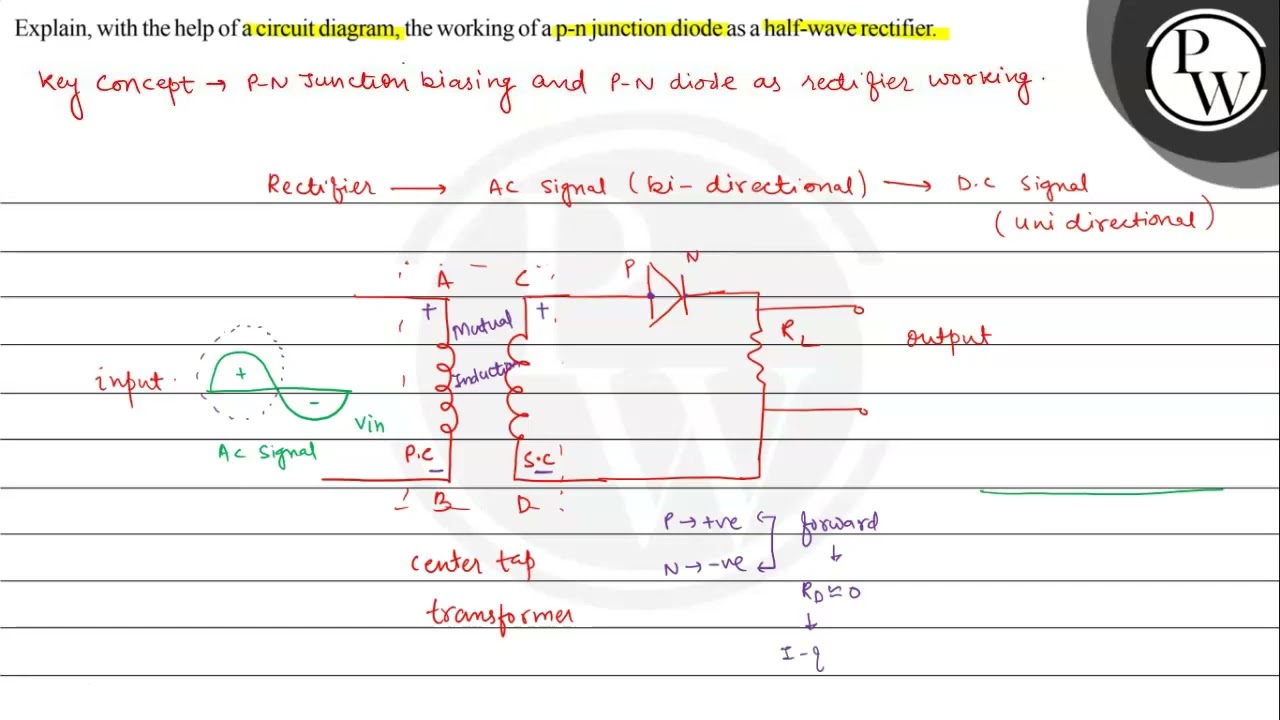 Explain, with the help of a circuit diagram, the working of a p-n junction diode as a half-wave rectifier.
PW
Key Concept → P-N Junction biasing and P-N diode as rectifier working.
Rectifier → AC signal (bi-directional) → D.C signal
(uni directional)
A C P N
+ Mutual +
RL output
input + Induction
- Vin
AC signal P.C S.C
B D
P → +ve forward
N → -ve
center tap
RD ≈ 0
transformer